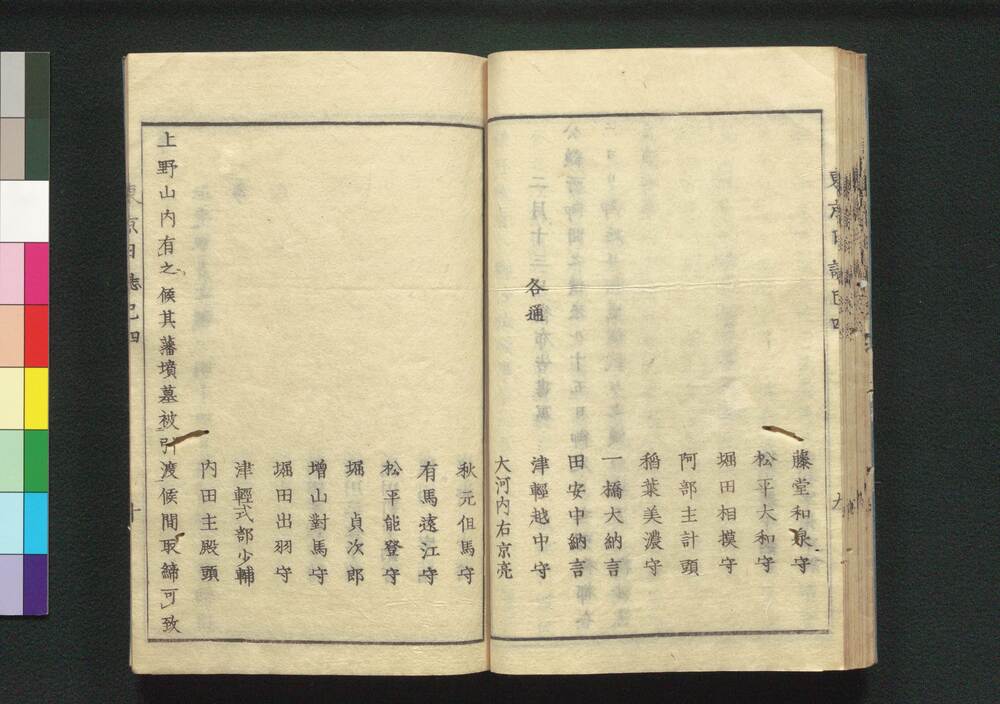 藤堂和泉守
松平大和守
堀田相摸守
阿部主計頭
稻葉美濃守
一橋大納言
田安中納言
各通
津輕越中守
大河内右京亮
秋元但馬守
有馬遠江守
松平能登守
堀川貞次郎
增山對馬守
堀田出羽守
津輕式部少輔
内田主殿頭
上野山内有之候其藩墳墓被引渡候間取締可致